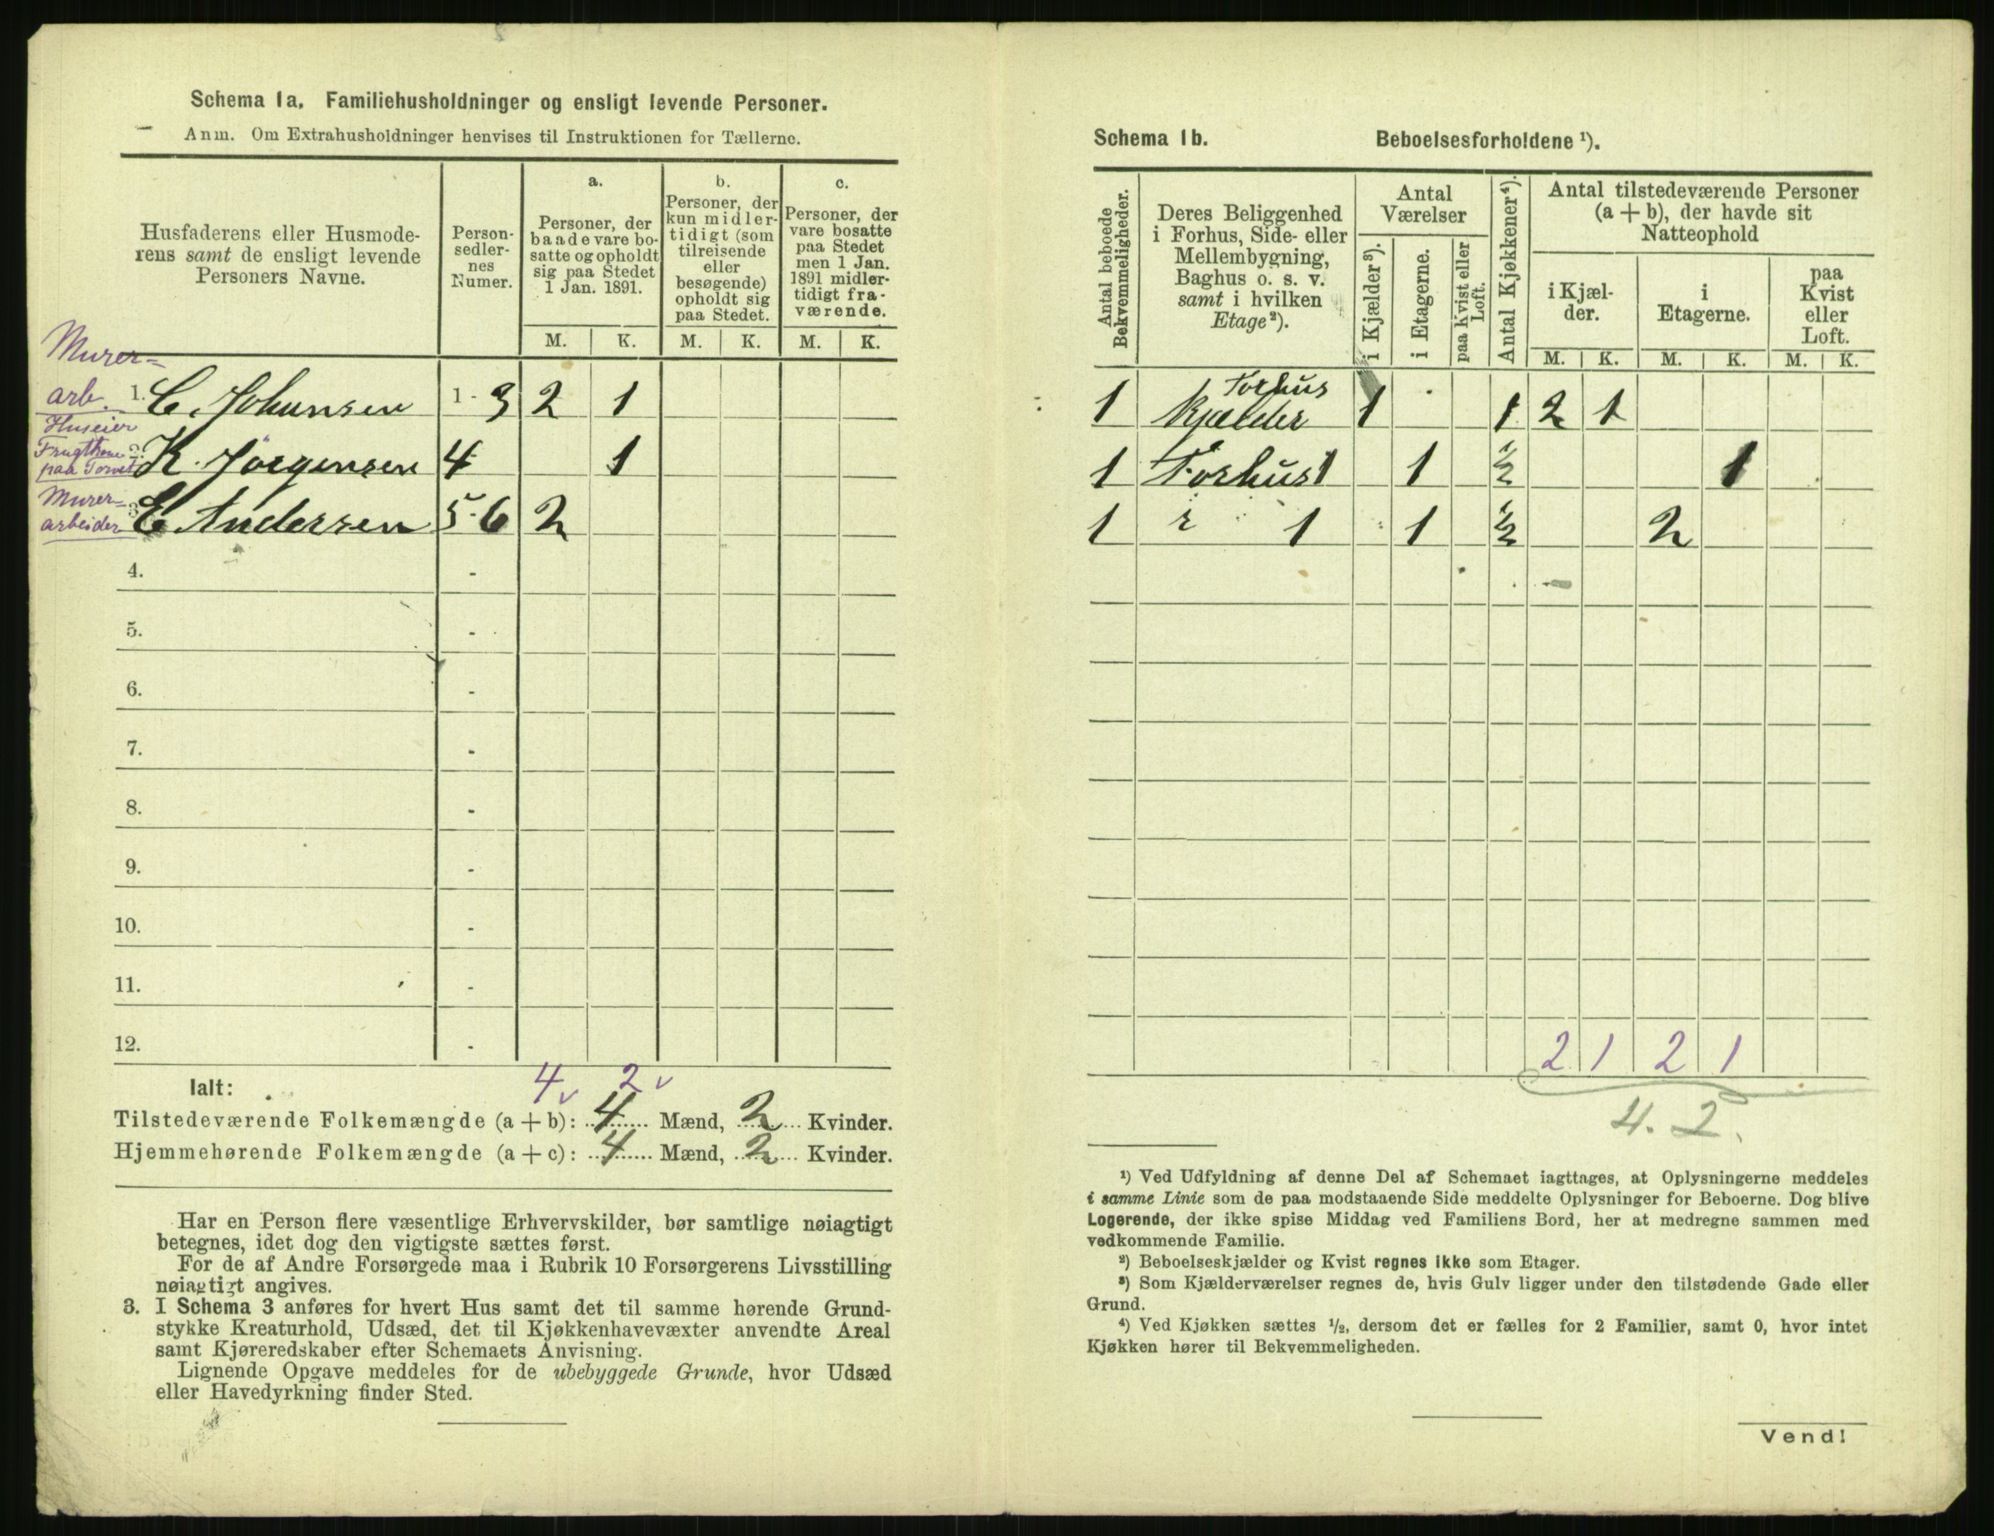 Schema 1a. Familiehusholdninger og ensligt levende Personer.
Anm. Om Extrahusholdninger henvises til Instruktionen for Tællerne.
Husfaderens eller Husmode-
rens samt de ensligt levende
Personers Navne.
Person-
sedler-
nes
Numer.
a.
Personer, der
baade vare bo-
satte og opholdt
sig paa Stedet
1 Jan. 1891.
b.
Personer, der
kun midler-
tidigt (som
tilreisende
eller
besøgende)
opholdt sig
paa Stedet.
c.
Personer, der
vare bosatte
paa Stedet
men 1 Jan.
1891 midler-
tidigt fra-
værende.
M. K. M. K. M. K.
Murer-
arb.
1. C. Johansen 1-3 2 1
Huseier
Frugtkone
paa Torvet
2. K. Jörgensen 4 1
Murer-
arbeider
3. E Andersen 5-6 2
4. -
5. -
6. -
7. -
8. -
9. -
10. -
11. -
12. -
4 v 2 v
Ialt:
Tilstedeværende Folkemængde (a + b): 4 Mænd, 2 Kvinder.
Hjemmehørende Folkemængde (a + c): 4 Mænd, 2 Kvinder.
Har en Person flere væsentlige Erhvervskilder, bør samtlige nøiagtigt
betegnes, idet dog den vigtigste sættes først.
For de af Andre Forsørgede maa i Rubrik 10 Forsørgerens Livsstilling
nøiagtigt angives.
3. I Schema 3 anføres for hvert Hus samt det til samme hørende Grund-
stykke Kreaturhold, Udsæd, det til Kjøkkenhavevæxter anvendte Areal
samt Kjøreredskaber efter Schemaets Anvisning.
Lignende Opgave meddeles for de ubebyggede Grunde, hvor Udsæd
eller Havedyrkning finder Sted.
Schema 1b. Beboelsesforholdene ¹).
Antal beboede
Bekvemmeligheder.
Deres Beliggenhed
i Forhus, Side- eller
Mellembygning,
Baghus o. s. v.
samt i hvilken
Etage²).
Antal
Værelser
i Kjælder³).
i Etagerne.
paa Kvist eller
Loft.
Antal Kjøkkener⁴).
Antal tilstedeværende Personer
(a + b), der havde sit
Natteophold
i Kjæl-
der.
i
Etagerne.
paa
Kvist
eller
Loft.
M. K. M. K. M. K.
Forhus
1 Kjælder 1 1 2 1
1 Forhus 1 1 ½ 1
1 1 1 ½ 2
2 1 2 1
4. 2.
¹) Ved Udfyldning af denne Del af Schemaet iagttages, at Oplysningerne meddeles
i samme Linie som de paa modstaaende Side meddelte Oplysninger for Beboerne. Dog blive
Logerende, der ikke spise Middag ved Familiens Bord, her at medregne sammen med
vedkommende Familie.
²) Beboelseskjælder og Kvist regnes ikke som Etager.
³) Som Kjælderværelser regnes de, hvis Gulv ligger under den tilstødende Gade eller
Grund.
⁴) Ved Kjøkken sættes ½, dersom det er fælles for 2 Familier, samt 0, hvor intet
Kjøkken hører til Bekvemmeligheden.
Vend!